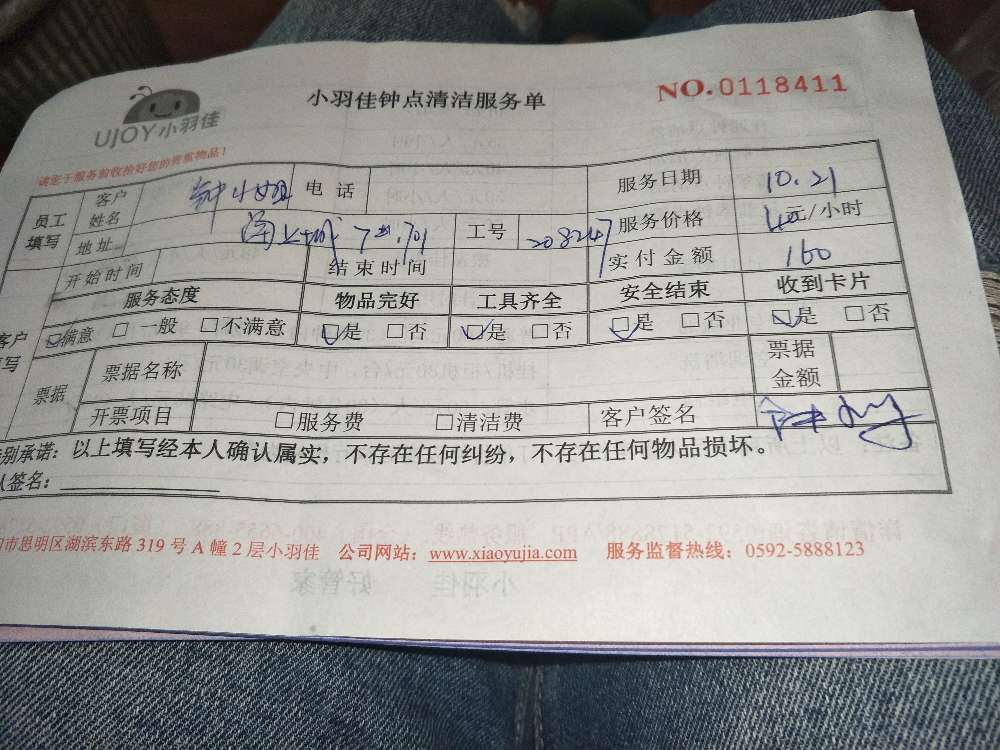 UJOY小羽佳
小羽佳钟点清洁服务单
NO.0118411
请您于服务前验收拾好您的贵重物品！
员工填写 客户姓名 钟小姐 电话 服务日期 10.21
地址 7 701 工号 208247 服务价格 40元/小时
开始时间 结束时间 实付金额 160
服务态度 物品完好 工具齐全 安全结束 收到卡片
满意 □一般 □不满意 ☑是 □否 ☑是 □否 ☑是 □否 ☑是 □否
票据 票据名称 票据金额
开票项目 □服务费 □清洁费 客户签名
别承诺：以上填写经本人确认属实，不存在任何纠纷，不存在任何物品损坏。
签名：
市思明区湖滨东路 319 号 A 幢 2 层小羽佳 公司网站：www.xiaoyujia.com 服务监督热线：0592-5888123
小羽佳 好管家